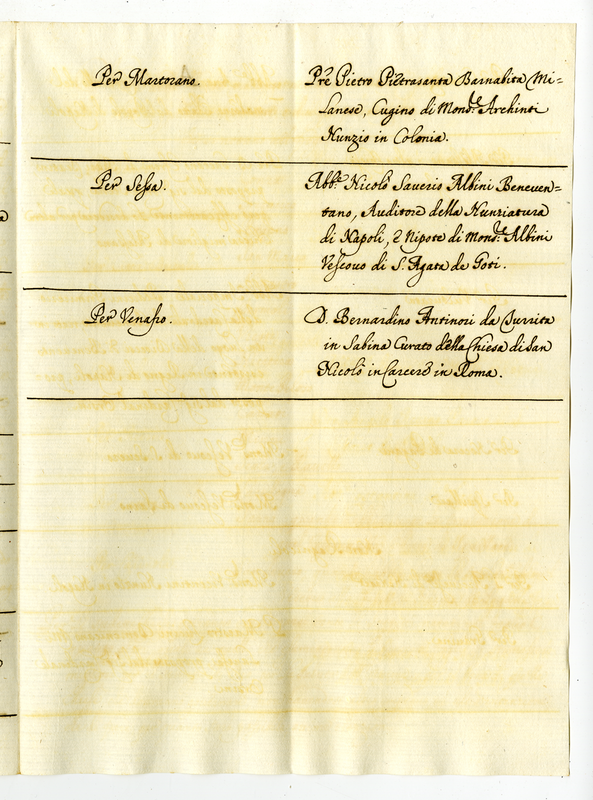 Per Martorano.
Pr̃e Pietro Pietrasanta Barnabita Mi=
lanese, Cugino di Mons.re Archinti
Nunzio in Colonia.
Per Sessa.
Abb.e Nicolò Saverio Albini Beneven=
tano, Auditore della Nunziatura
di Napoli, e Nipote di Mons.re Albini
Vescovo di S. Agata de Goti.
Per Venafro.
D. Bernardino Antinori da Currita
in Sabina Curato della Chiesa di San
Nicolò in Carcere in Roma.